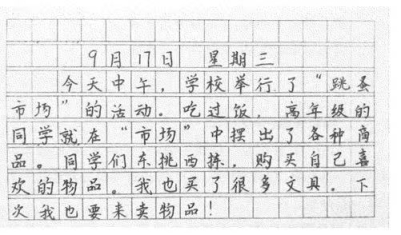 9月17日 星期三
今天中午，学校举行了“跳蚤
市场”的活动。吃过饭，高年级的
同学就在“市场”中摆出了各种商
品。同学们东挑西拣，购买自己喜
欢的物品。我也买了很多文具。下
次我也要来卖物品！